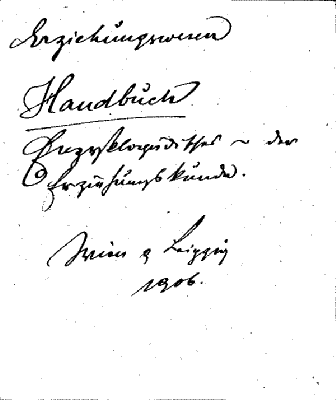 Erziehungswesen
Handbuch
Enzyklopädisches ~ der
Erziehungskunde.
Wien & Leipzig
1906.